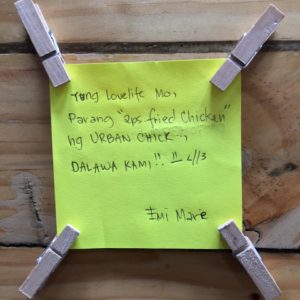 Yung lovelife Mo,
Parang "2ps fried Chicken"
ng URBAN CHICK..,
DALAWA KAMI!!
Emi Marie